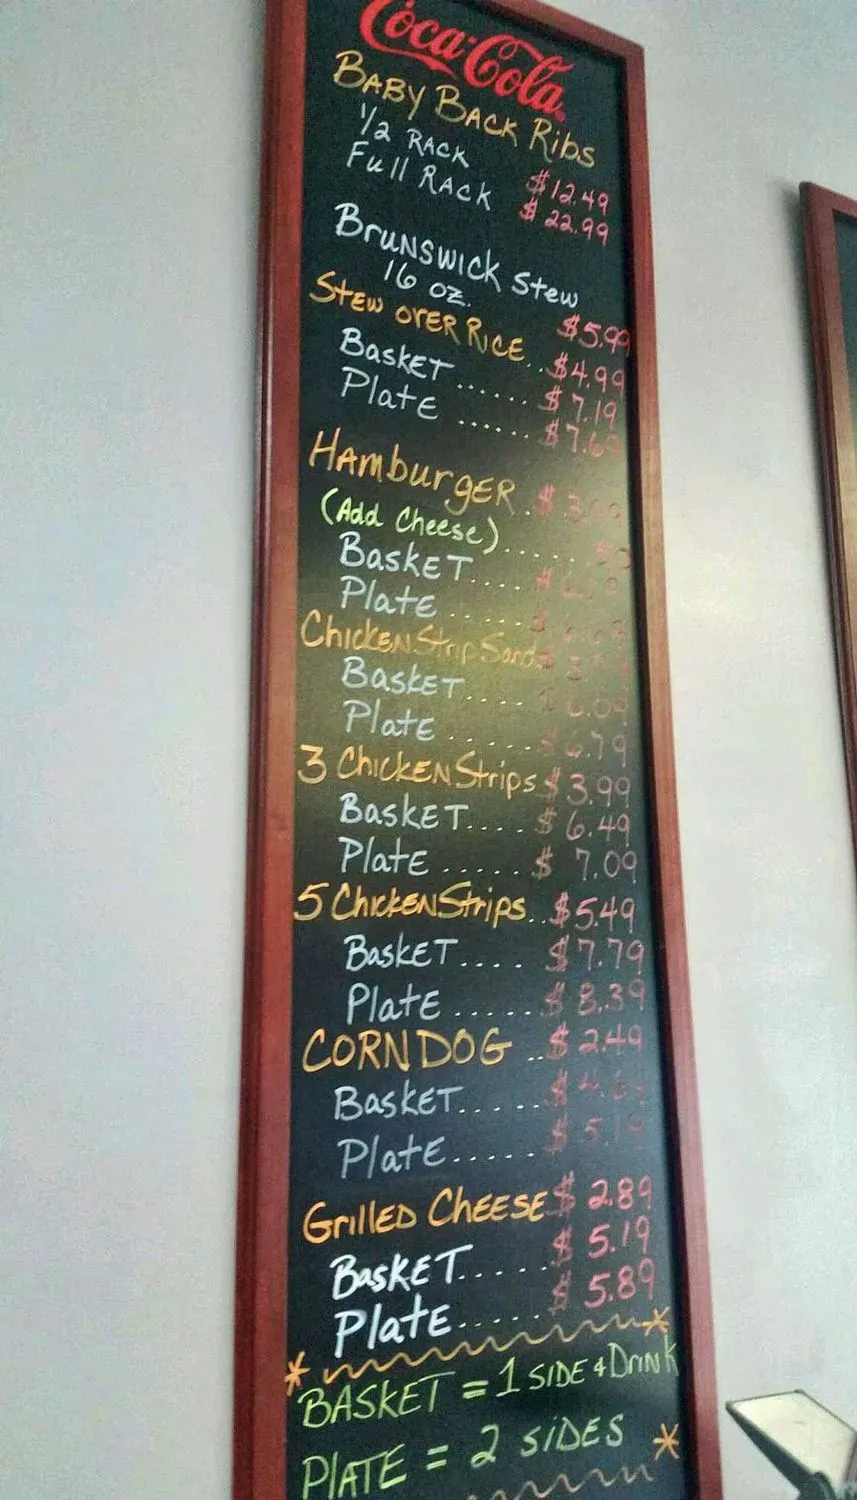 Coca-Cola
BABY BACK RIBS
1/2 RACK $12.49
Full RACK $22.99
BRUNSWICK Stew
16 oz. $5.99
STEW OVER RICE.. $4.99
BASKET ...... $7.19
Plate ......
HAmburgER .$
(Add Cheese)......
BASKET....
Plate ......
ChickEN Strip Sand.
BASKET.....
Plate ...... $6.79
3 ChickEN Strips $3.99
BASKET.... $6.49
Plate ...... $7.09
5 ChickEN Strips.. $5.49
BASKET.... $7.79
Plate ...... $8.39
CORN DOG ..$2.49
BASKET.....
Plate...... $5.19
GrillED CHEESE $2.89
BASKET..... $5.19
Plate...... $5.89
BASKET = 1 SIDE & DrINK
PLATE = 2 SIDES